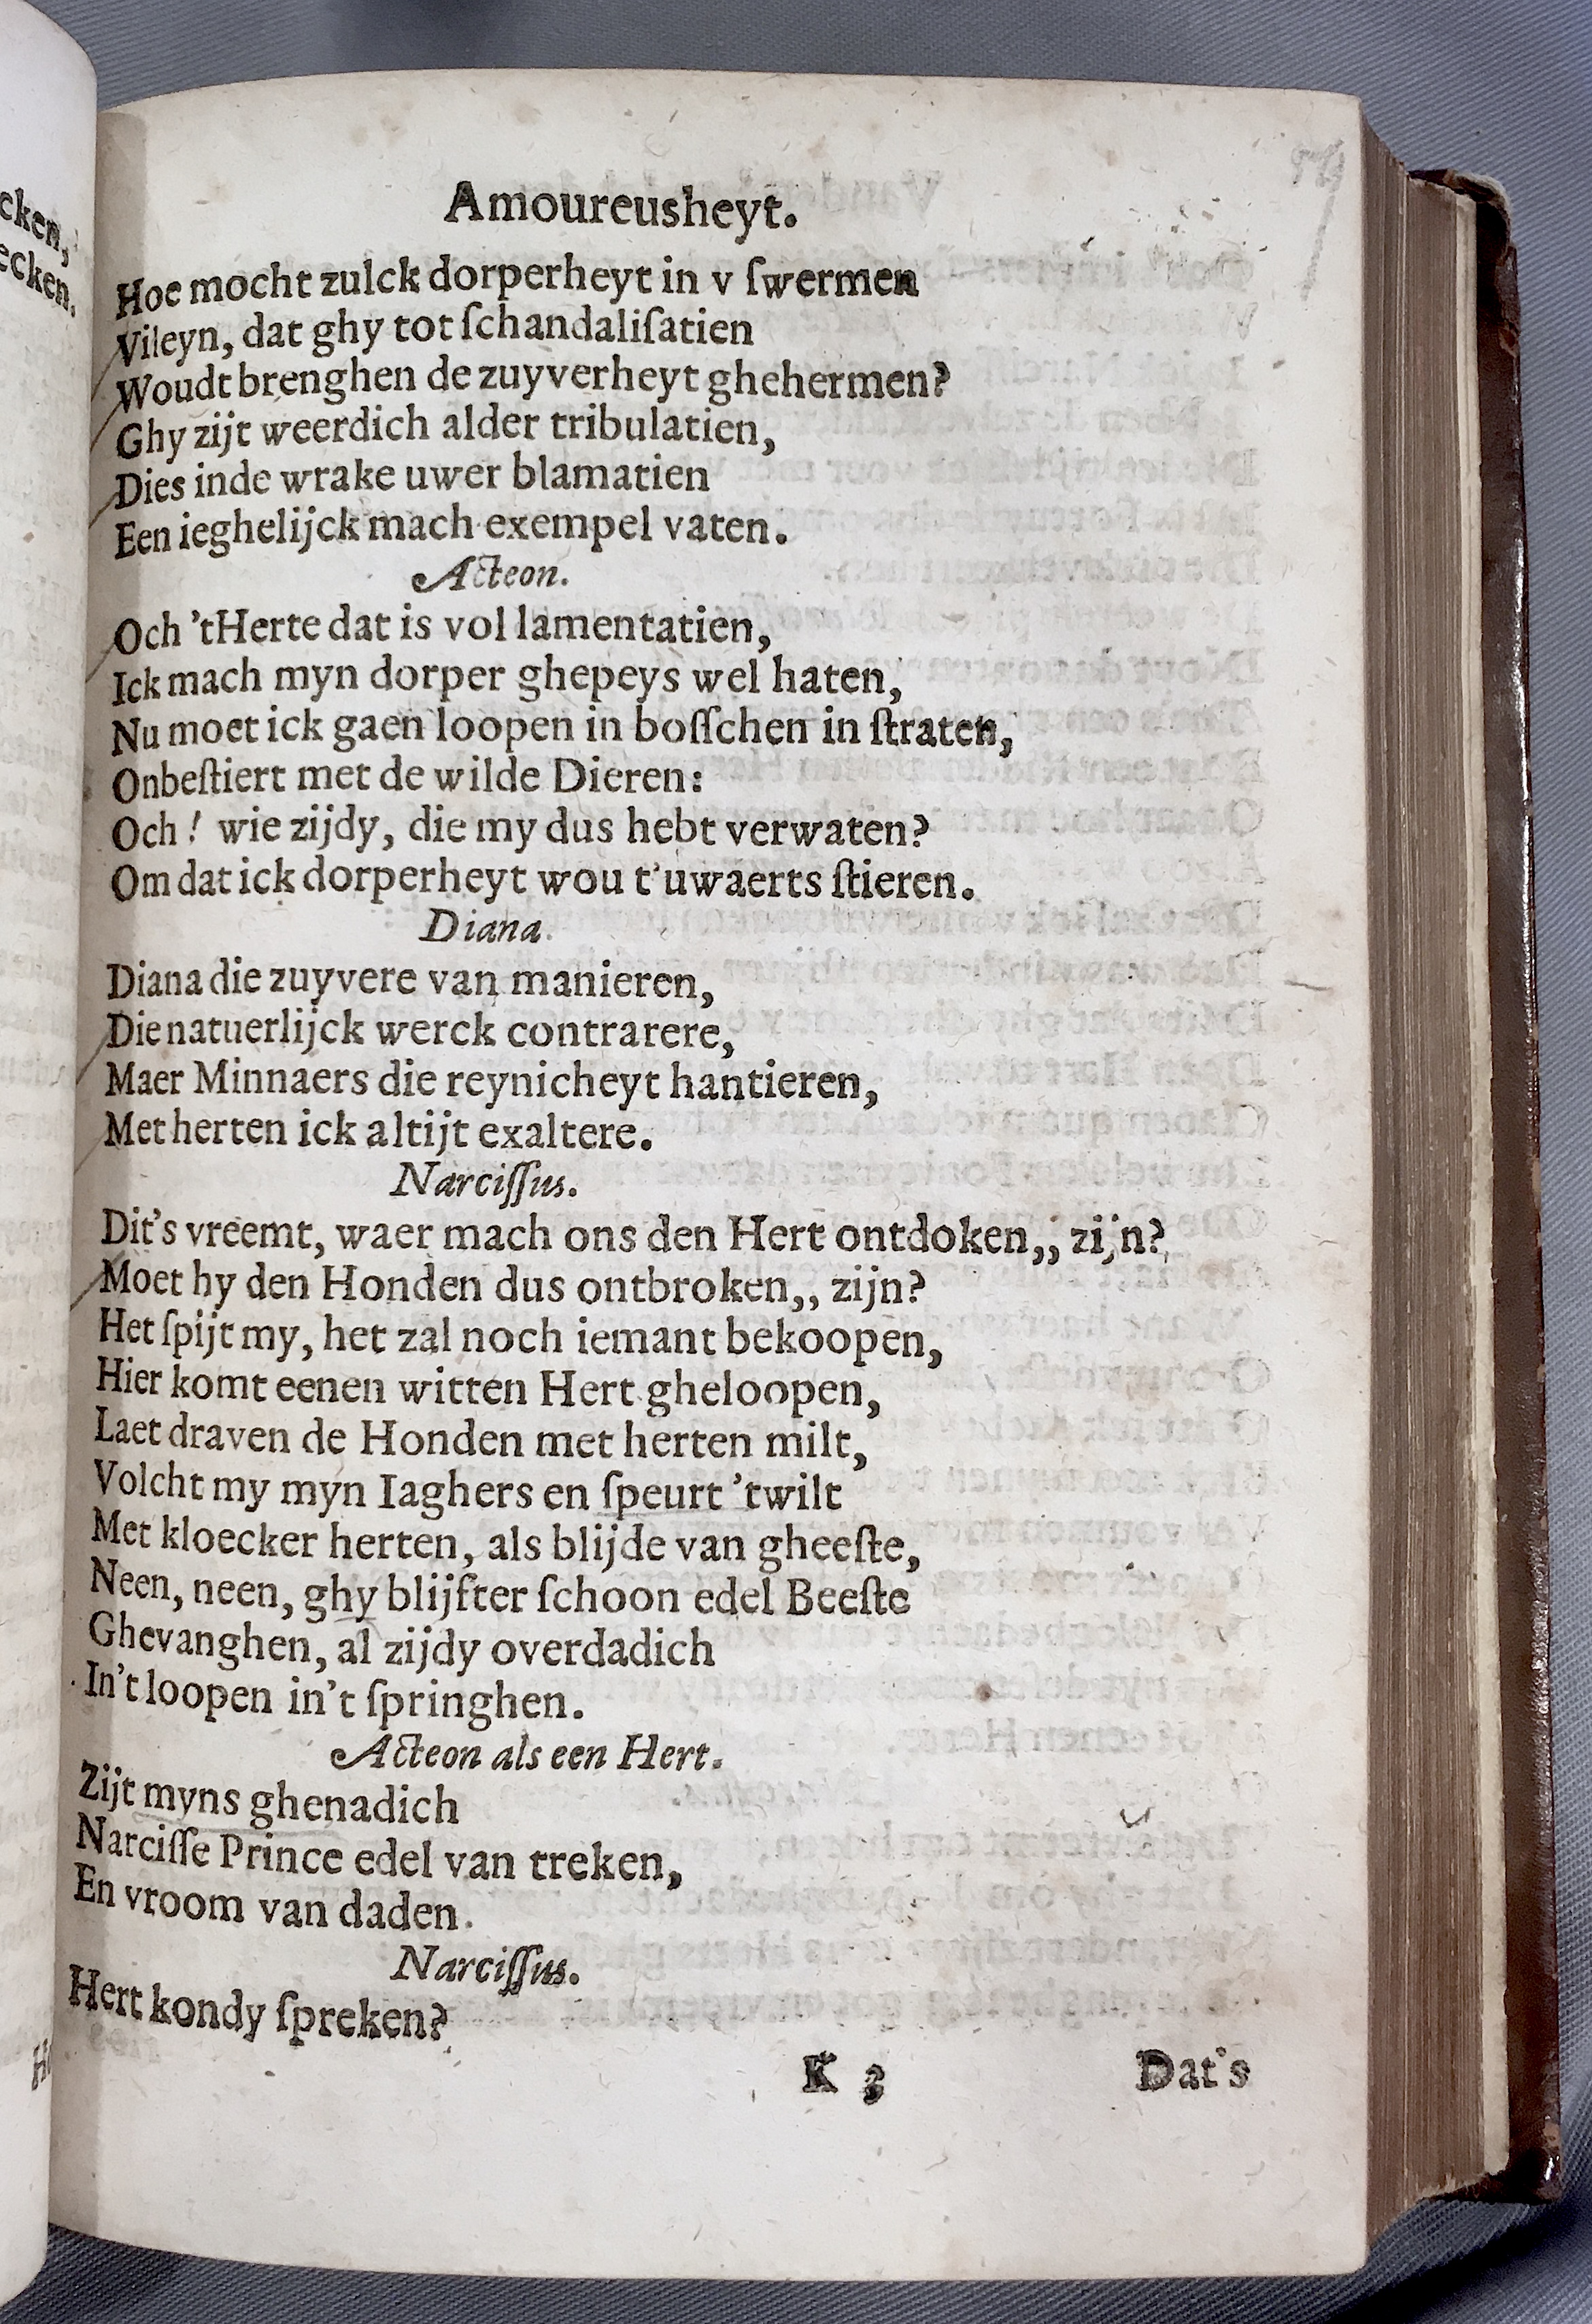 cken,
ecken.
Amoureusheyt.
Hoe mocht zulck dorperheyt in v ſwermen
Vileyn, dat ghy tot ſchandaliſatien
Woudt brenghen de zuyverheyt ghehermen?
Ghy zijt weerdich alder tribulatien,
Dies inde wrake uwer blamatien
Een ieghelijck mach exempel vaten.
Acteon.
Och 'tHerte dat is vol lamentatien,
Ick mach myn dorper ghepeys wel haten,
Nu moet ick gaen loopen in boſſchen in ſtraten,
Onbeſtiert met de wilde Dieren:
Och! wie zijdy, die my dus hebt verwaten?
Om dat ick dorperheyt wou t'uwaerts ſtieren.
Diana.
Diana die zuyvere van manieren,
Die natuerlijck werck contrarere,
Maer Minnaers die reynicheyt hantieren,
Met herten ick altijt exaltere.
Narciſſus.
Dit's vreemt, waer mach ons den Hert ontdoken,, zijn?
Moet hy den Honden dus ontbroken,, zijn?
Het ſpijt my, het zal noch iemant bekoopen,
Hier komt eenen witten Hert gheloopen,
Laet draven de Honden met herten milt,
Volcht my myn Iaghers en ſpeurt 'twilt
Met kloecker herten, als blijde van gheeſte,
Neen, neen, ghy blijfter ſchoon edel Beeſte
Ghevanghen, al zijdy overdadich
In't loopen in't ſpringhen.
Acteon als een Hert.
Zijt myns ghenadich
Narciſſe Prince edel van treken,
En vroom van daden.
Narciſſus.
Hert kondy ſpreken?
K 3 Dat's